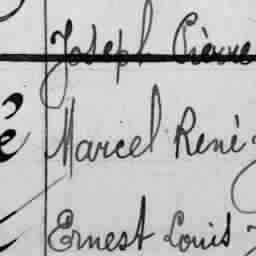 Joseph Pierre
é Marcel René
Ernest Louis